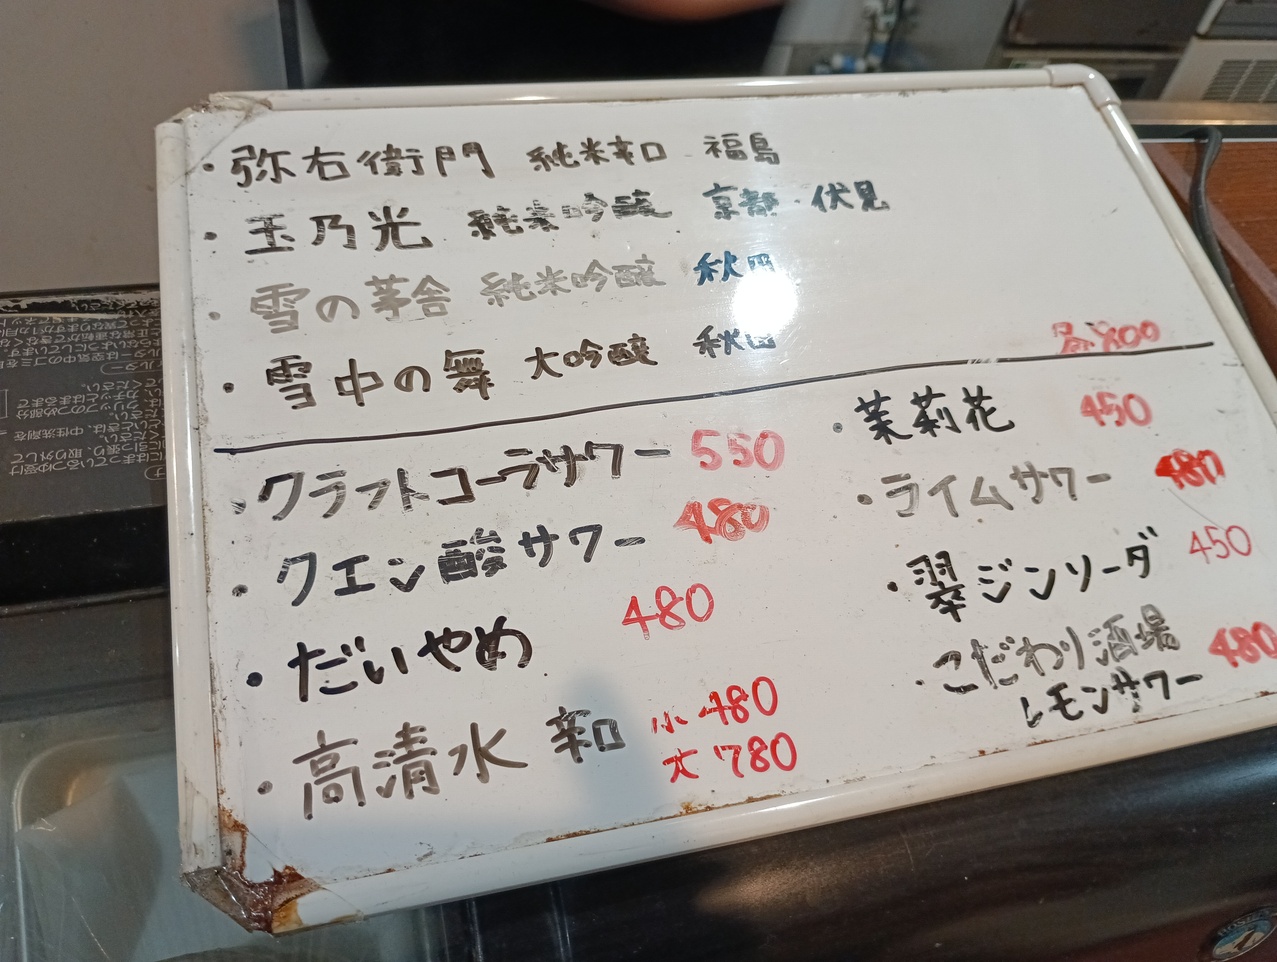 ・弥右衛門 純米辛口 福島
・玉乃光 純米吟醸 京都・伏見
・雪の茅舎 純米吟醸 秋田
・雪中の舞 大吟醸 秋田
各800
・クラフトコーラサワー 550
・クエン酸サワー 480
・だいやめ 480
・高清水 辛口 小480
大780
・茉莉花 450
・ライムサワー 480
・翠ジンソーダ 450
・こだわり酒場 480
レモンサワー